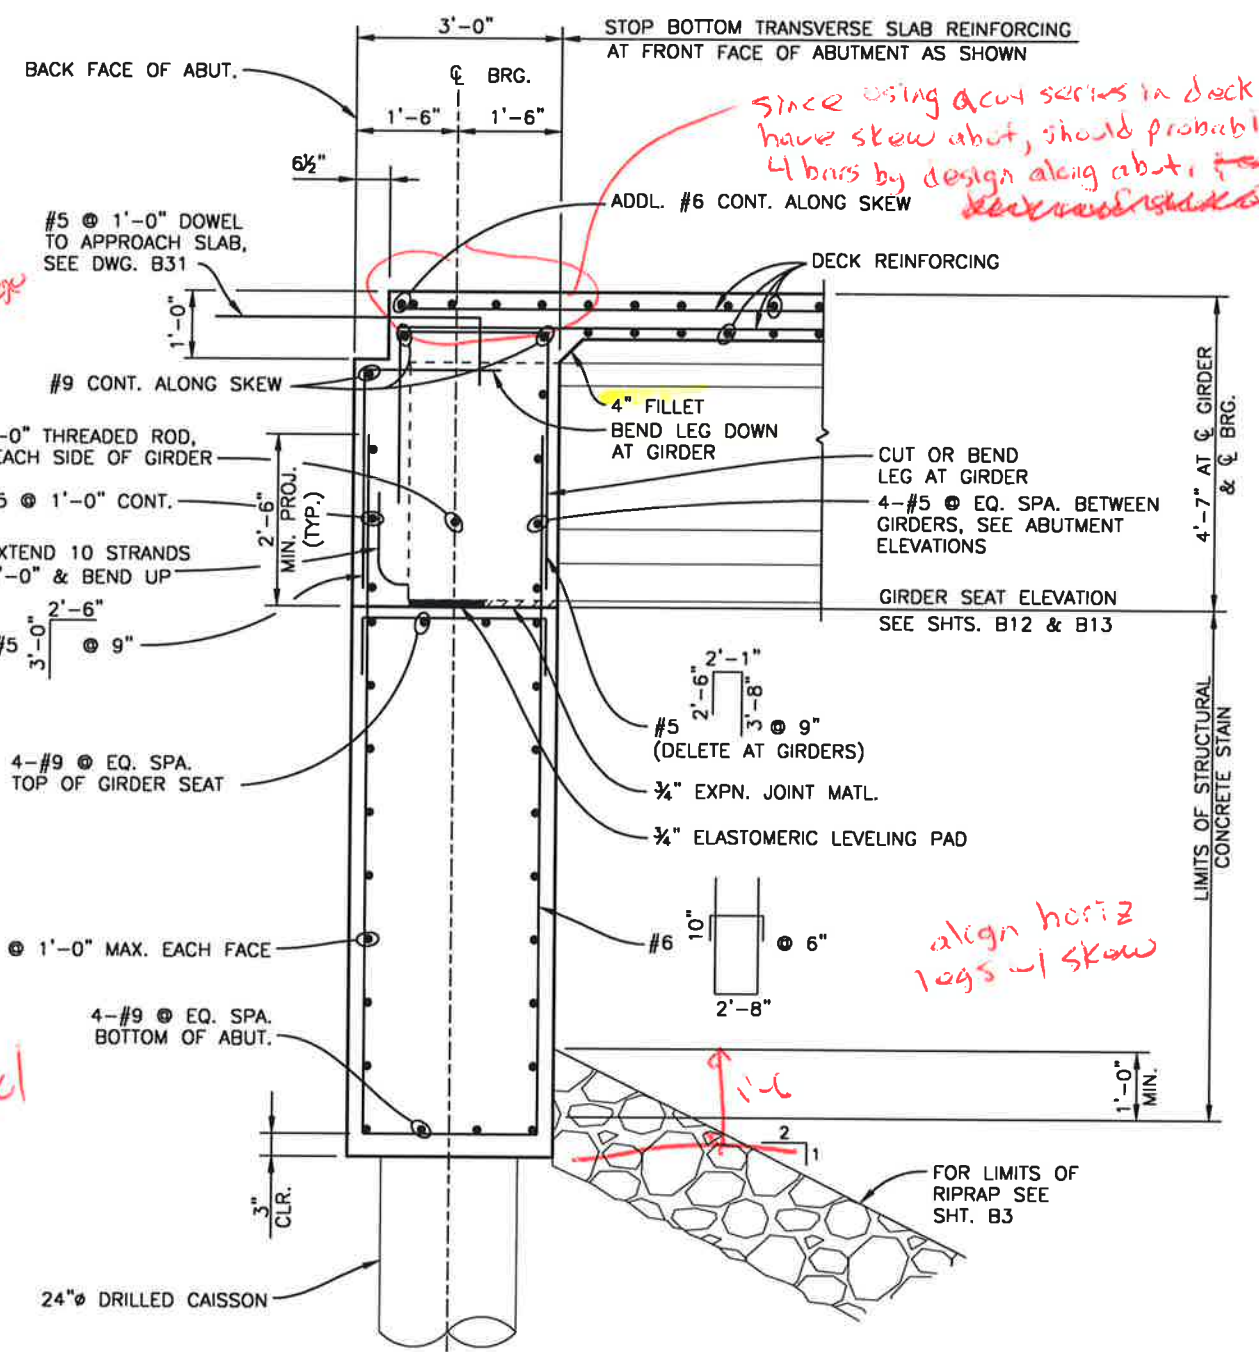 3'-0"
STOP BOTTOM TRANSVERSE SLAB REINFORCING
AT FRONT FACE OF ABUTMENT AS SHOWN
BACK FACE OF ABUT.
℄ BRG.
1'-6"
1'-6"
since using acut series in deck
have skew abut, should
4 bars by design along abut.
6½"
#5 @ 1'-0" DOWEL
TO APPROACH SLAB,
SEE DWG. B31
ADDL. #6 CONT. ALONG SKEW
DECK REINFORCING
1'-0"
#9 CONT. ALONG SKEW
4" FILLET
BEND LEG DOWN
AT GIRDER
-0" THREADED ROD,
EACH SIDE OF GIRDER
CUT OR BEND
LEG AT GIRDER
5 @ 1'-0" CONT.
4-#5 @ EQ. SPA. BETWEEN
GIRDERS, SEE ABUTMENT
ELEVATIONS
2'-6"
MIN. PROJ.
(TYP.)
4'-7" AT ℄ GIRDER
& ℄ BRG.
XTEND 10 STRANDS
'-0" & BEND UP
GIRDER SEAT ELEVATION
SEE SHTS. B12 & B13
#5
2'-6"
3'-0"
@ 9"
2'-1"
2'-6"
3'-8"
#5 @ 9"
(DELETE AT GIRDERS)
4-#9 @ EQ. SPA.
TOP OF GIRDER SEAT
¾" EXPN. JOINT MATL.
¾" ELASTOMERIC LEVELING PAD
LIMITS OF STRUCTURAL
CONCRETE STAIN
@ 1'-0" MAX. EACH FACE
#6
10"
@ 6"
2'-8"
align horiz
legs w/ skew
4-#9 @ EQ. SPA.
BOTTOM OF ABUT.
1'-6
1'-0"
MIN.
2
1
3"
CLR.
FOR LIMITS OF
RIPRAP SEE
SHT. B3
24"ø DRILLED CAISSON